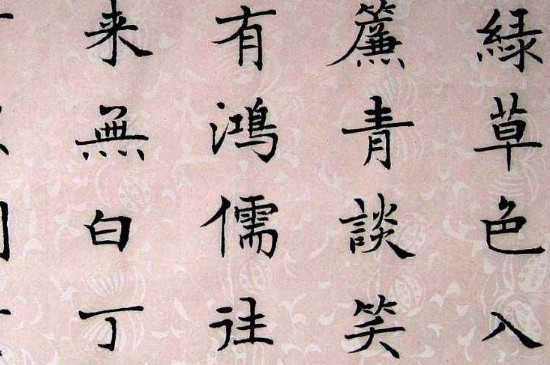 綠草色入
簾青談笑
有鴻儒往
来無白丁